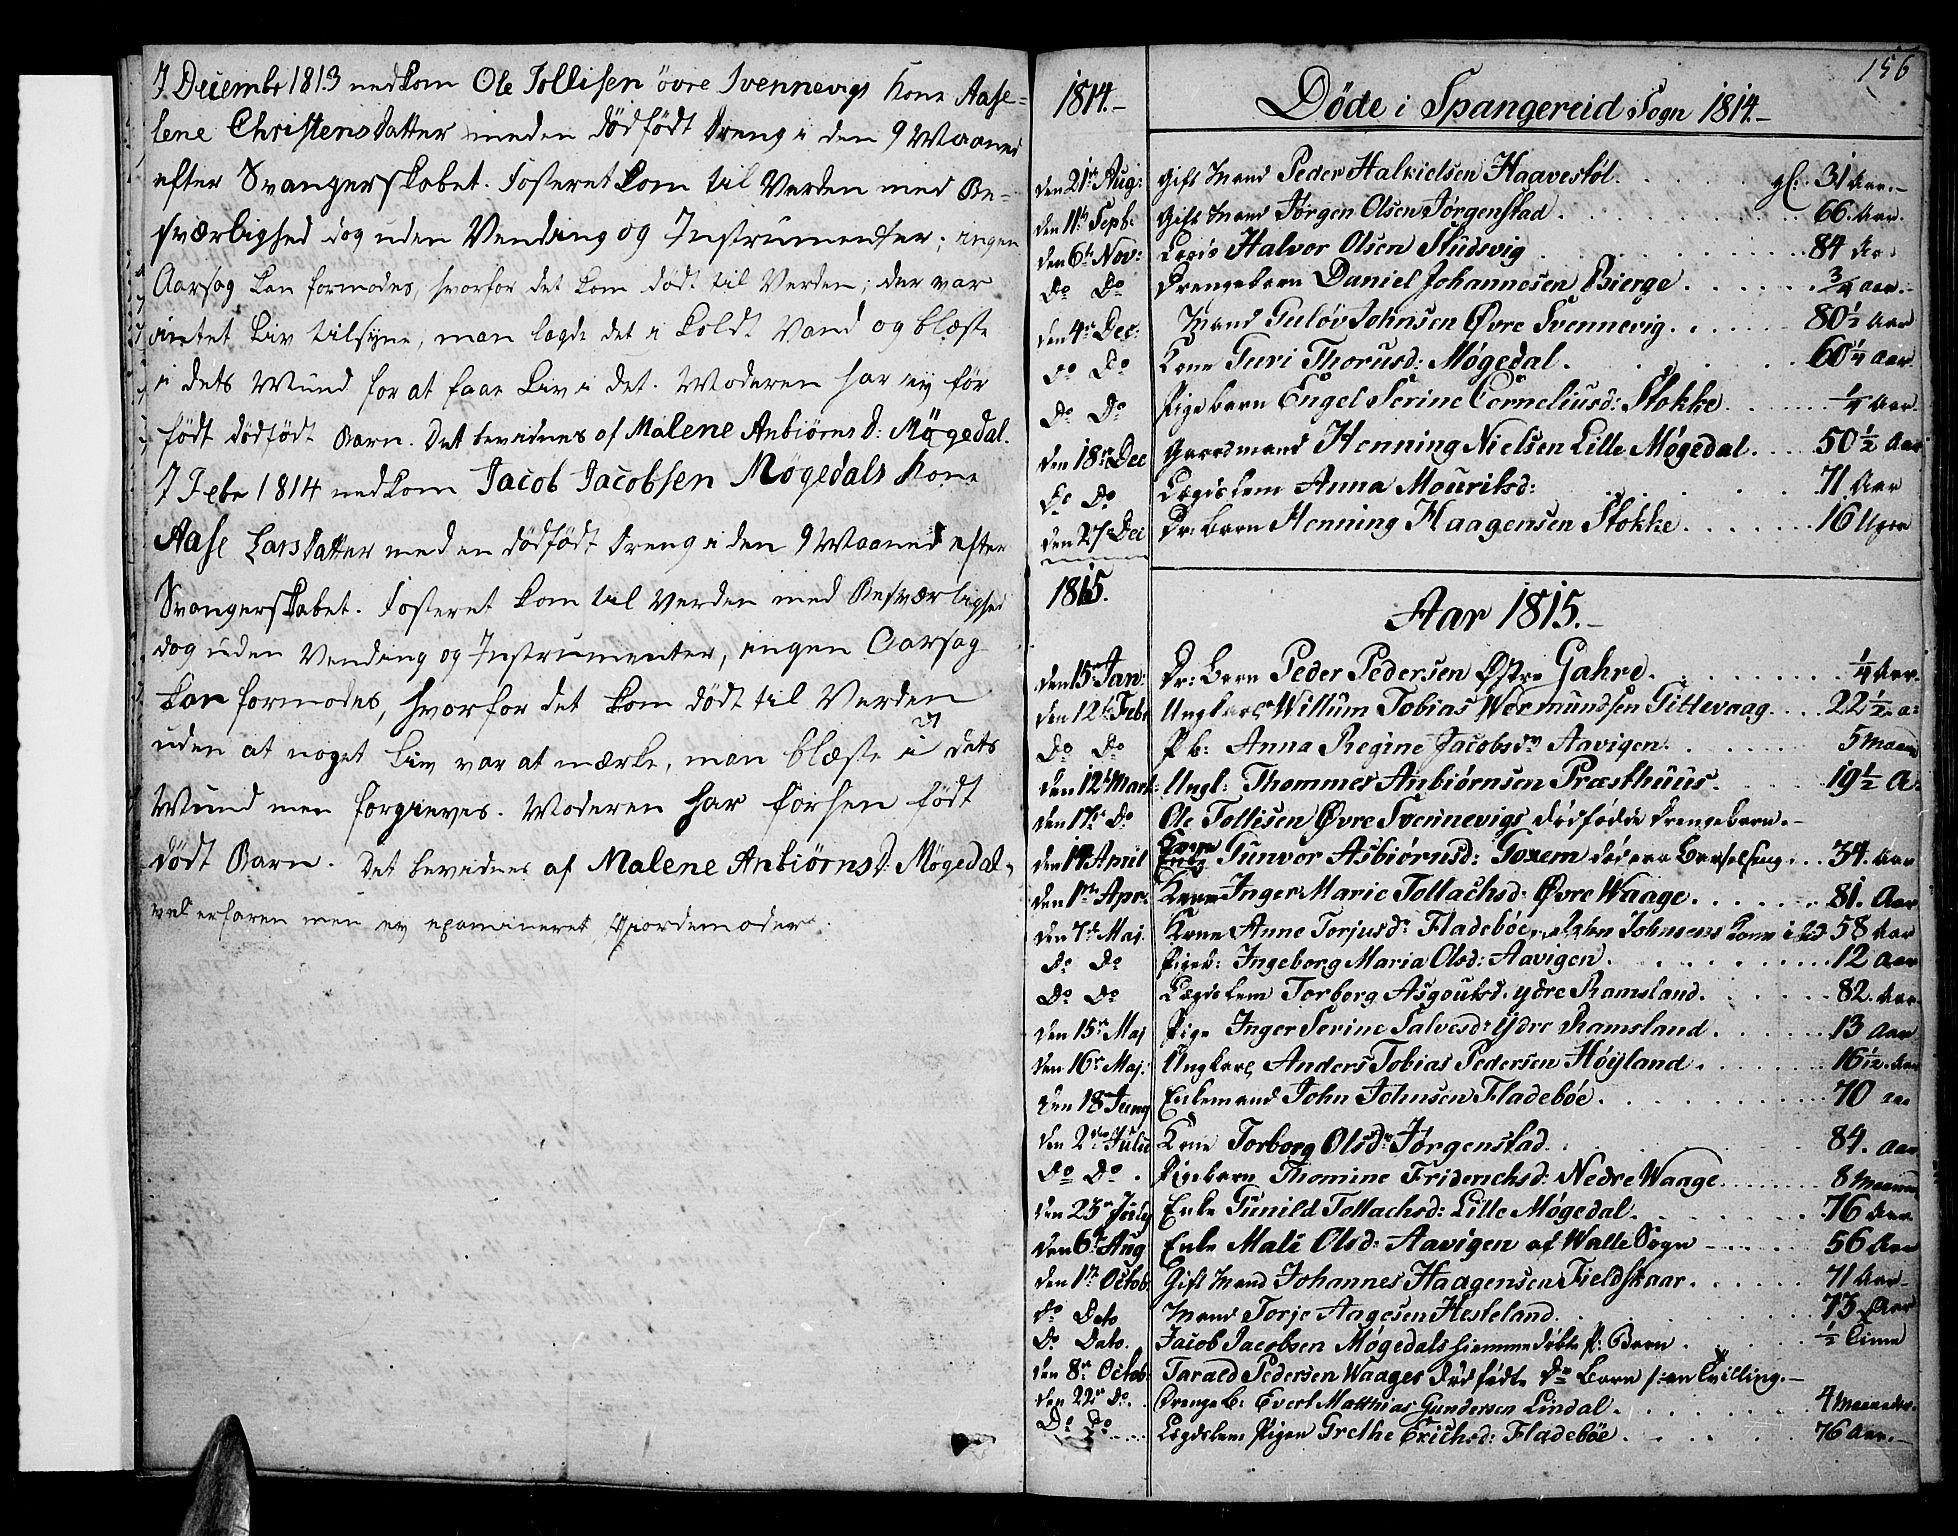 7 Decembr 1813 nedkom Ole Tollisen øvre Svennevigs Kone Aase-
lene Christensdatter med en dødfødt Dreng i den 9 Maaned
efter Svangerskabet. Fosteret kom til Verden med Be-
sværlighed dog uden Vending og Instrumenter; ingen
Aarsag kan formodes, hvorfor det kom dødt til Verden; der var
intet Liv tilsyne, man lagde det i koldt Vand og blæste
i dets Mund for at faae Liv i det. Moderen har ej før
født dødfødt Barn. Det bevidnes af Malene AnbiørnsD: Møgedal.
7 Febr 1814 nedkom Jacob Jacobsen Møgedals Kone
Aase Larsdatter med en dødfødt Dreng i den 9 Maaned efter
Svangerskabet. Fosteret kom til Verden med Besværlighed
dog uden Vending og Instrumenter, ingen Aarsag
kan formodes, hvorfor det kom dødt til Verden
uden at noget Liv var at mærke, man blæste i dets
Mund men forgieves. Moderen har forhen født
dødt Barn. Det bevidnes af Malene AnbiørnsD: Møgedal,
vel erfaren men ej examineret Giordemoder.
156
1814.- Døde i Spangereid Sogn 1814.-
den 21de Aug: Gift Mand Peder Halvielsen Haavestøl. gl: 31 Aar.-
den 11te Septb: Gift Mand Jørgen Olsen Jørgenstad. 66. Aar.
den 6te Nov: Lægds Halvor Olsen Studsvig 84 Aar
Do Do Drengebarn Daniel Johannesen Bierge. 3/4 aar.-
den 4de Dec: Mand Guløv Johnsen Øvre Svennevig. 80 1/2 Aar
Do Do Kone Guri Thorusd: Møgedal. 60 1/4 Aar.
Do Do Pigebarn Engel Serine Corneliusd: Stokke. 1/4 Aar.
den 18de Dec Gaardmand Henning Nielsen Lille Møgedal. 50 1/2 Aar
Do Do Lægdslem Anna Mouritsd: 71 Aar
den 27de Dec Dr: Barn Henning Haagensen Stokke. 16 Uger
1815. Aar 1815.-
den 15de Jan: Dr: Barn Peder Pedersen Østre Gahre. 1/4 Aar.
den 12te Febr Ungkarl Willum Tobias Wermundsen Gittevaag. 22 1/2 a:
Do Do P. b: Anna Regine Jacobsdr Aavigen. 5 Maan
den 12te Mart: Ungl: Thommes Anbiørnsen Præsthuus. 19 1/2 A.
den 17de Do Ole Tollisen Øvre Svennevigs dødfødde Drengebarn.-
den 14 April Kone Gunvor Asbiørnsd: Goxem død paa Barselseng. 34. Aar
den 1te Apr: Kone Inger Marie Tollachsd: Øvre Waage. 81. Aar
den 7de Maj. Kone Anne Terjusdr Fladebøe, John Johnsens Kone 58 Aar
Do Do Pigeb: Ingeborg Maria Olsd: Aavigen. 12 Aar
Do Do Lægdslem Torborg Asgoutsd. ydre Ramsland. 82. Aar.
den 15de Maj Pige Inger Serine Salvesdr Ydre Ramsland. 13 Aar
den 16de Maj. Ungkarl Anders Tobias Pedersen Høyland. 16 1/2. Aar
den 18 Juny Enkemand John Johnsen Fladebøe. 70 aar
den 2den Julii Kone Torborg Olsdr Jørgenstad. 84. Aar
Do Do. Pigebarn Thomine Friderichsd: Nedre Waage. 8 Maaned
den 23de July Enke Gunild Tollachsd: Lille Møgedal. 76 Aar
den 6te Aug Enke Mali Olsd: Aavigen af Walle Sogn 56 Aar
den 1te Octob. Gift Mand Johannes Haagensen Fieldskaar. 71 Aar
Do Dato Mand Torje Aagesen Hesteland. 73 Aar
Do Dato. Jacob Jacobsen Møgedals hiemmedøbte P: Barn. 1/2 Time
den 8de Octob. Tarald Pedersen Waages dødfødte Dr Barn /: en Tvilling.-
den 22de Do. Drenge B: Evert Matthias Gundersen Lindal. 4 Maaneder.
Do Do Lægdslem Pigen Grethe Erichsd: Fladebøe. 76 Aar.-